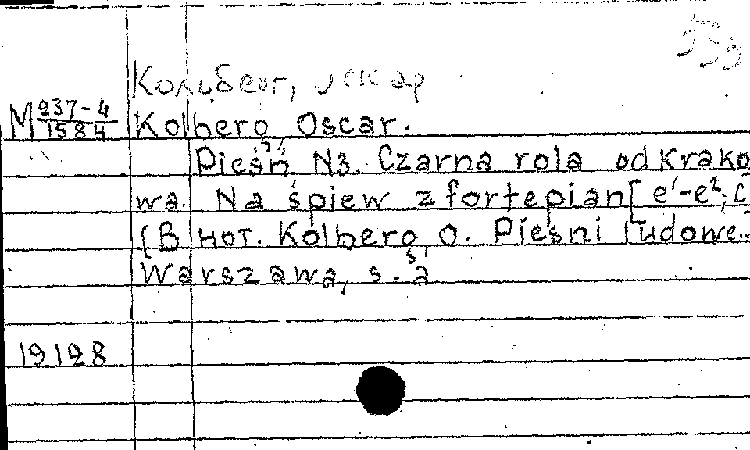 559
Кольберг, Оскар
М 937-4/1584
Kolberg, Oscar.
Pieśń N3. Czarna rola od Krako
wa. Na śpiew z fortepian [e¹-e²; C
{В нот. Kolberg, O. Pieśni ludowe..
Warszawa, s. a
19128